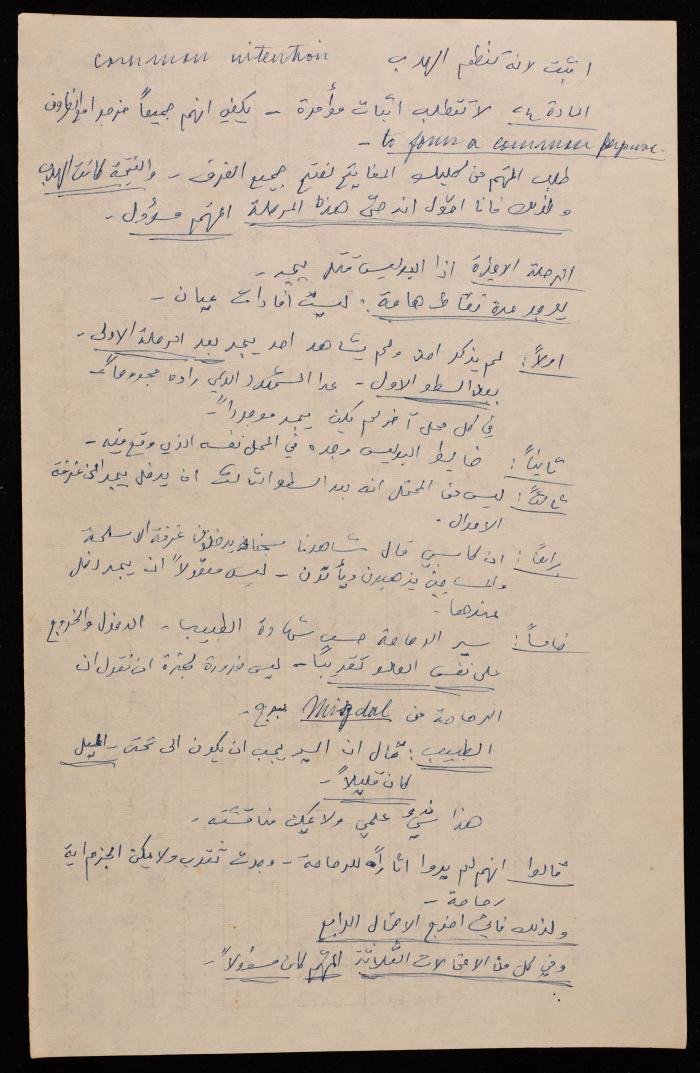 اثبت لانه كنظم الهرب common intention
المادة ٢٤ لا تتطلب اثبات مؤامرة - يكفي انهم جميعاً خرجوا مع الظروف
to form a common purpose -
طلب المتهم من كليك المفاتيح لفتح جميع الغرف - والنتيجة كانت الهرب
ولذلك فانا اقول انه حتى هذه المرحلة المتهم مسؤول -
المرحلة الاخيرة اذا البوليس قتل يجيد -
يوجد عدة نقاط هامة: ليست افادات عيان -
اولاً: لم يذكر احد ولم يشاهد احد يجيد بعد المرحلة الاولى -
بعد السطو الاول - عدا المشتكى الذي رآه مجروحاً -
في كل محل آخر لم يكن يجيد موجوداً -
ثانياً: ضابط البوليس وجده في المحل نفسه الذي وقع فيه -
ثالثاً: ليس من المحتمل انه بعد السطو الثالث ان يدخل يجيد الى غرفة
الاموال -
رابعاً: ان كاسي قال شاهدنا يدخلون غرفة الاسلحة
والمساجين يذهبون ويأتون - ليس معقولاً ان يجيد دخل
عندها -
خامساً: سير الرصاصة حسب شهادة الطبيب - الدخول والخروج
على نفس العلو تقريباً - ليس ضرورة لجبرة ان نقول ان
الرصاصة من Migdal برج -
الطبيب: قال ان السير يجب ان يكون الى تحت - الميل
كان قليلاً -
هذا شيء علمي ولا يمكن مناقشته -
قالوا انهم لم يروا اثاراً للرصاصة - وجدت ثقوب ولا يمكن الجزم اية
رصاصة -
ولذلك فاني اضع الاحتمال الرابع
وفي كل من الاحتمالات الثلاثة المتهم كان مسؤولاً -